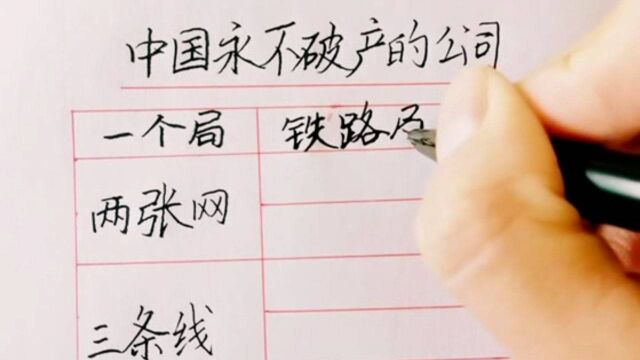 中国永不破产的公司
一个局 铁路局
两张网
三条线